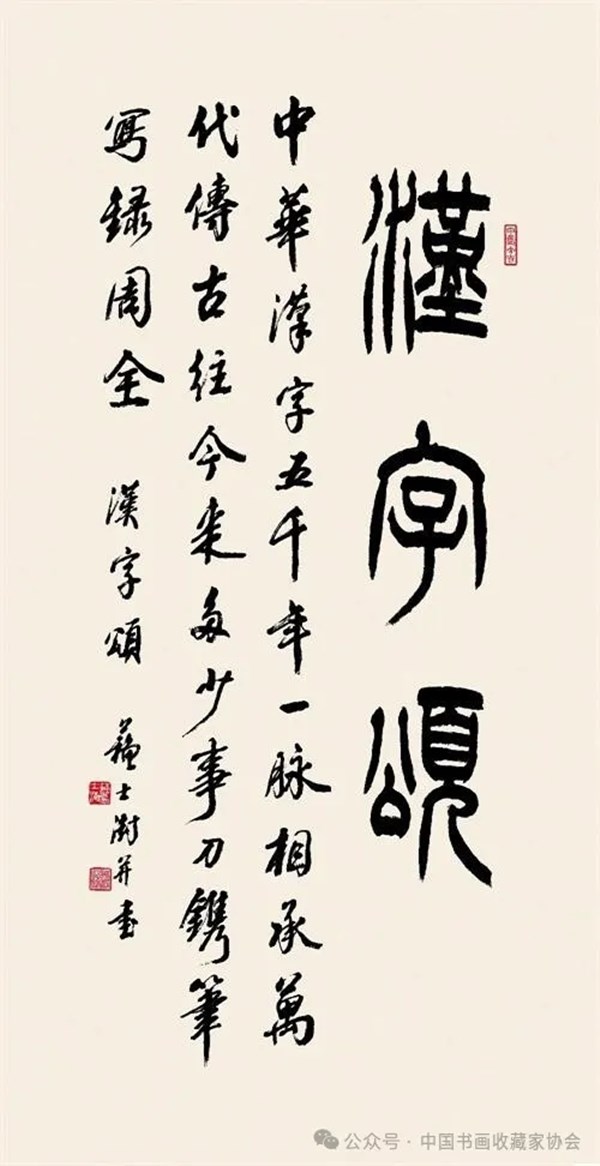 漢字頌
中華漢字五千年一脉相承萬
代傳古往今来多少事刀鐫筆
寫録周全 漢字頌 蘇士澍并書
公众号·中国书画收藏家协会